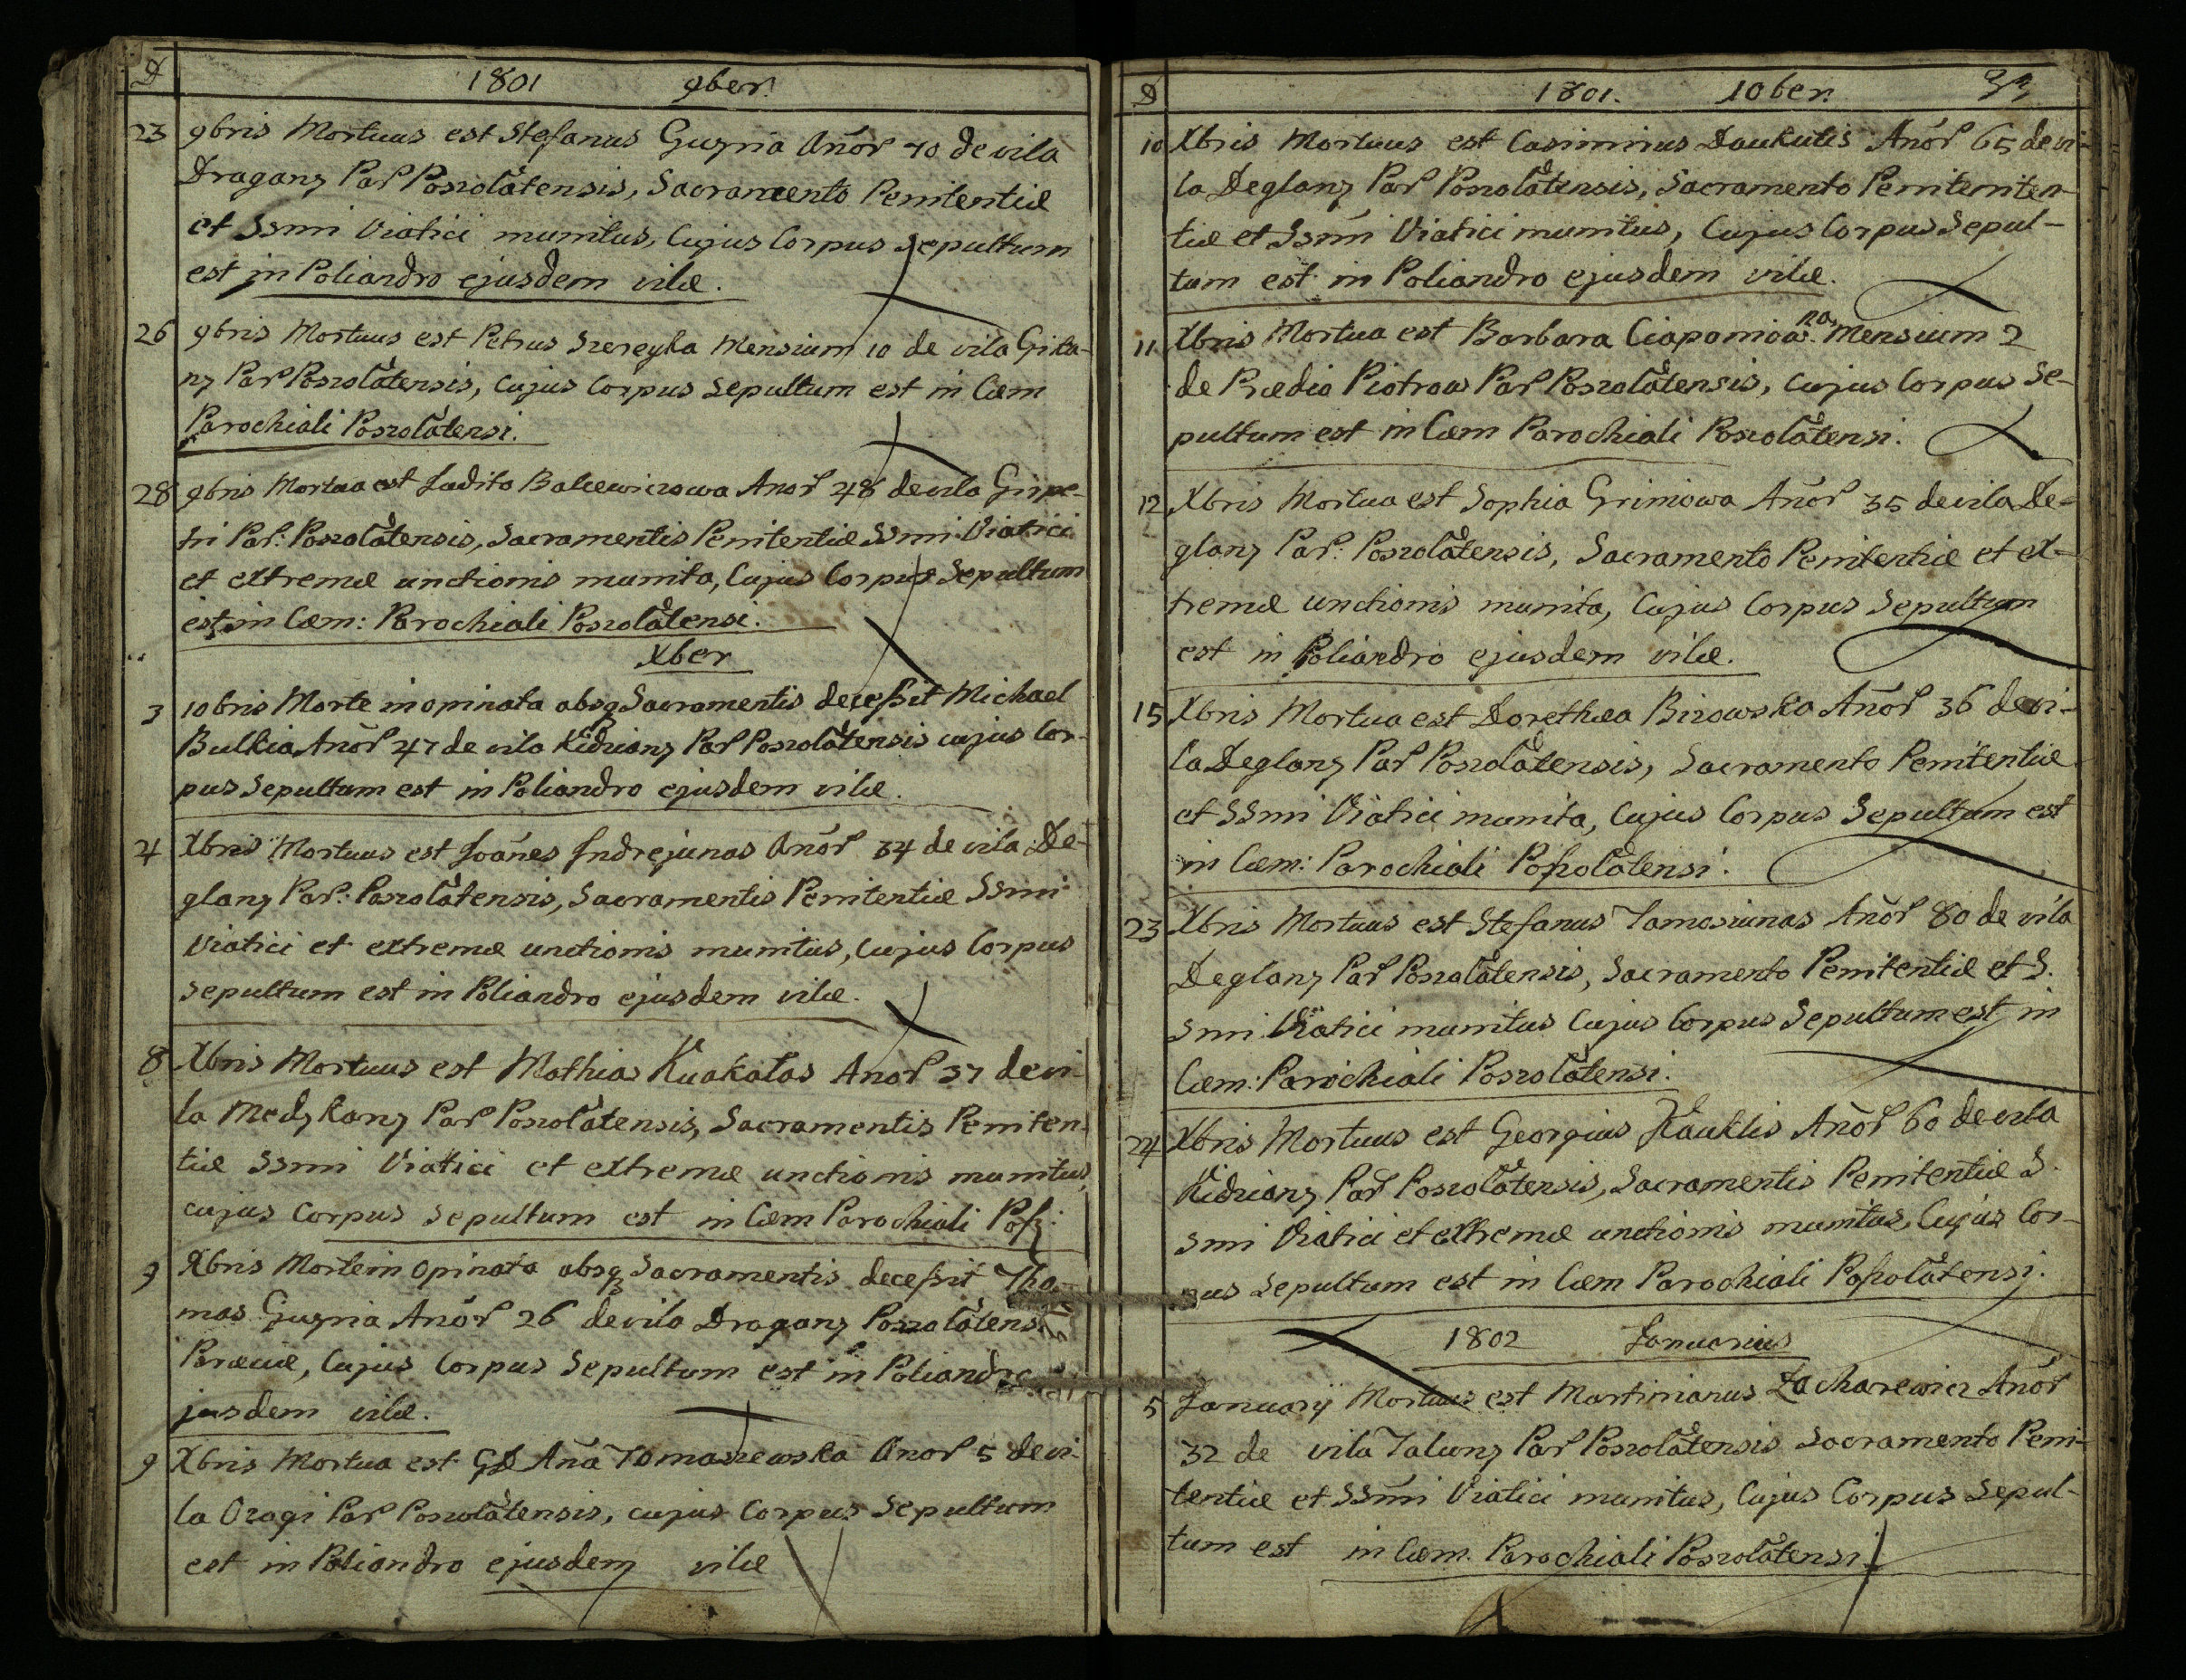 D 1801 9ber.
23 9bris Mortuus est Stefanus Guzria Añor 70 de vila
Dragany Par Poszolatensis, Sacramento Penitentiæ
et SSmi Viatici munitus, Cujus Corpus Sepultum
est in Poliandro ejusdem vilæ.
26 9bris Mortuus est Petrus Szereyka Mensium 10 de vila Gika-
ny Par Poszolatensis, Cujus Corpus Sepultum est in Cæm
Parochiali Poszolatensi.
28 9bris Mortua est Judita Balcewiczowa Anor 48 de vila Girpe-
tri Par: Poszolatensis, Sacramentis Penitentiæ SSmi Viatici
et extremæ unctionis munita, Cujus Corpus Sepultum
est in Cæm: Parochiali Poszolatensi.
Xber
3 10bris Morte inopinata absq Sacramentis decessit Michael
Bulkia Añor 47 de vila Kidziany Par Poszolatensis cujus Cor-
pus Sepultum est in Poliandro ejusdem vilæ.
4 Xbris Mortuus est Joañes Indrejunas Anor 34 de vila De-
glany Par: Poszolatensis, Sacramentis Penitentiæ SSmi
Viatici et extremæ unctionis munitus, Cujus Corpus
Sepultum est in Poliandro ejusdem vilæ.
8 Xbris Mortuus est Mathias Kuakatas Anor 37 de vi-
la Medzkany Par Poszolatensis, Sacramentis Peniten-
tiæ SSmi Viatici et extremæ unctionis munitus,
cujus Corpus Sepultum est in Cæm Parochiali Posz:
9 Xbris Mortem opinata absq Sacramentis decessit Tho-
mas Guzria Añor 26 de vila Dragany Poszolatens:
Paræciæ, Cujus Corpus Sepultum est in Poliandro
jusdem vilæ.
9 Xbris Mortua est GD Aña Tomaszewska Anor 5 de vi-
la Ozagi Par Poszolatensis, cujus Corpus Sepultum
est in Poliandro ejusdem vilæ
D 1801. 10ber.
10 Xbris Mortuus est Casimirus Daukutis Añor 65 de vi-
la Deglany Par Poszolatensis, Sacramento Penitemiten-
tiæ et SSmi Viatici munitus, Cujus Corpus Sepul-
tum est in Poliandro ejusdem vilæ.
11 Xbris Mortua est Barbara Ciaponioa.na Mensium 2
de Prædio Piotrow Par Poszolatensis, cujus Corpus Se-
pultum est in Cæm Parochiali Poszolatensi.
12 Xbris Mortua est Sophia Grimiowa Añor 35 de vila De-
glany Par: Poszolatensis, Sacramento Penitentiæ et ex-
tremæ unctionis munita, Cujus Corpus Sepultum
est in Poliandro ejusdem vilæ.
15 Xbris Mortua est Dorethæa Bizowska Añor 36 de vi-
la Deglany Par Poszolatensis, Sacramento Penitentiæ
et SSmi Viatici munita, Cujus Corpus Sepultum est
in Cæm: Parochiali Poszolatensi.
23 Xbris Mortuus est Stefanus Tamosiunas Añor 80 de vila
Deglany Par Poszolatensis, Sacramento Penitentiæ et S.
Smi Viatici munitus Cujus Corpus Sepultum est in
Cæm: Parochiali Poszolatensi.
24 Xbris Mortuus est Georgius Kauklis Añor 60 de vila
Kidziany Par Poszolatensis, Sacramentis Penitentiæ S-
Smi Viatici et extremæ unctionis munitus, Cujus Cor-
pus Sepultum est in Cæm Parochiali Poszolatensi.
1802 Januarius
5 Januarij Mortuus est Martinianus Zacharewicz Añor
32 de vila Taluny Par Poszolatensis Sacramento Peni-
tentiæ et SSmi Viatici munitus, Cujus Corpus Sepul-
tum est in Cæm. Parochiali Poszolatensi.